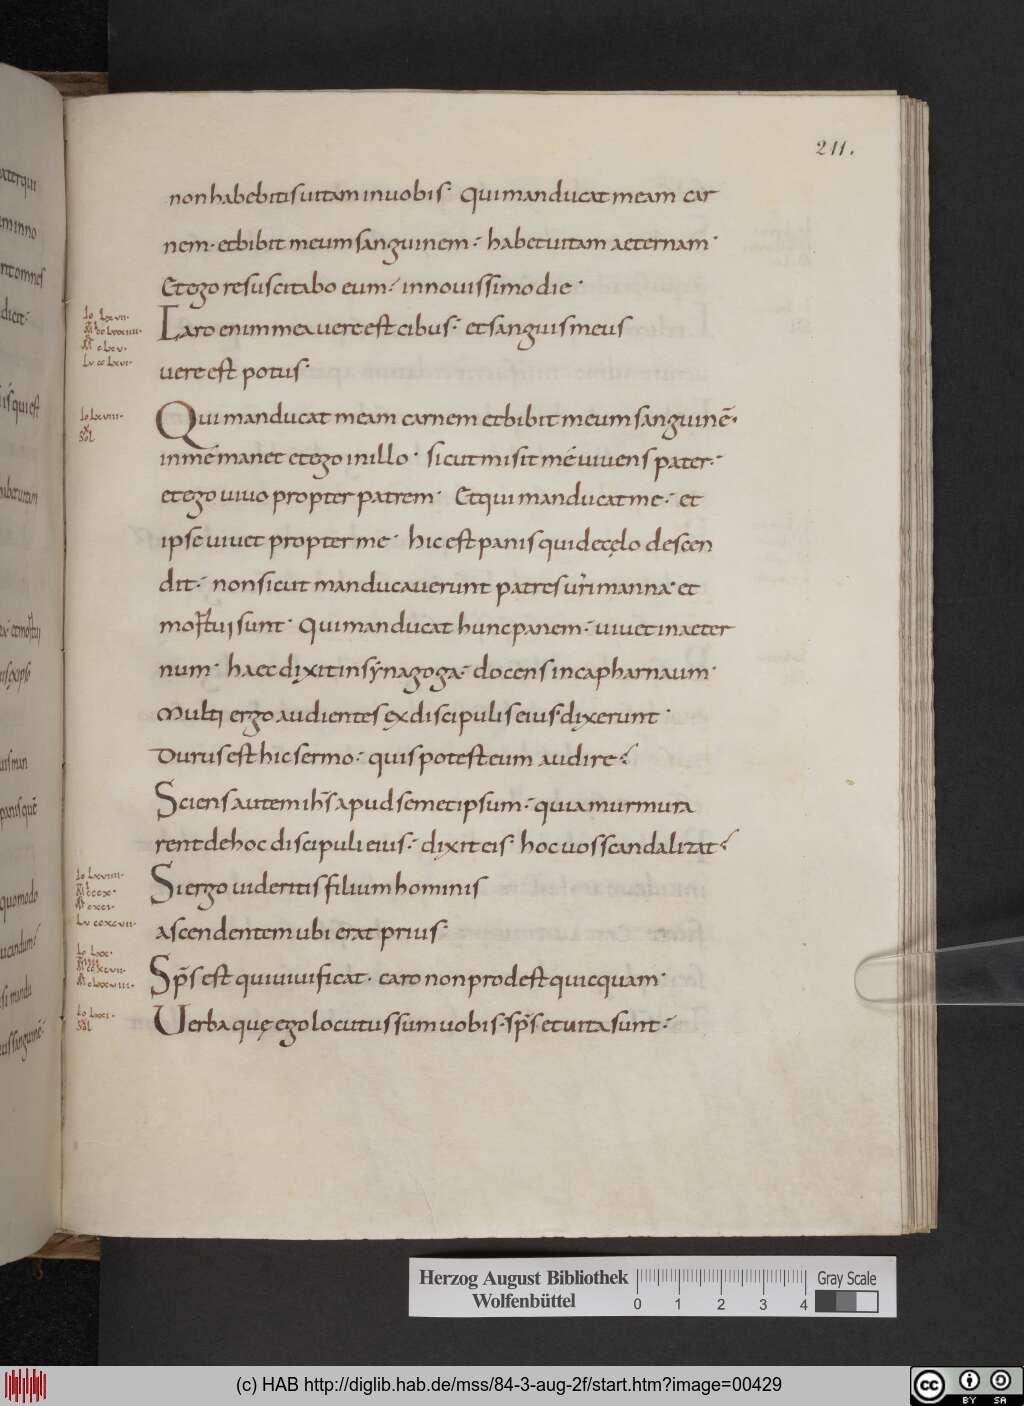 211.
non habebitis uitam in uobis· Qui manducat meam car
nem· et bibit meum sanguinem· habet uitam aeternam·
Et ego resuscitabo eum· in nouissimo die·
Caro enim mea uere est cibus· et sanguis meus
uere est potus·
Qui manducat meam carnem et bibit meum sanguinē·
in mé manet et ego in illo· sicut misit mé uiuens pater·
et ego uiuo propter patrem· Et qui manducat me· et
ipse uiuet propter me· hic est panis qui de cęlo descen
dit· non sicut manducauerunt patres uri manna· et
mortui sunt· Qui manducat hunc panem· uiuet in aeter
num· haec dixit in synagoga· docens in capharnaum·
Multi ergo audientes ex discipulis eius· dixerunt·
Durus est hic sermo· quis potest eum audire?
Sciens autem ihs apud semetipsum· quia murmura
rent de hoc discipuli eius· dixit eis· hoc uos scandalizat?
Si ergo uideritis filium hominis
ascendentem ubi erat prius·
Sps est qui uiuificat· caro non prodest quicquam·
Uerba quę ego locutus sum uobis· sps et uita sunt·
Io lxvii·
Io lxviii·
Sol
Io lxviiii·
Io lxx·
Io lxxi·
Sol
Herzog August Bibliothek
Wolfenbüttel
0 1 2 3 4
Gray Scale
(c) HAB http://diglib.hab.de/mss/84-3-aug-2f/start.htm?image=00429
cc BY SA